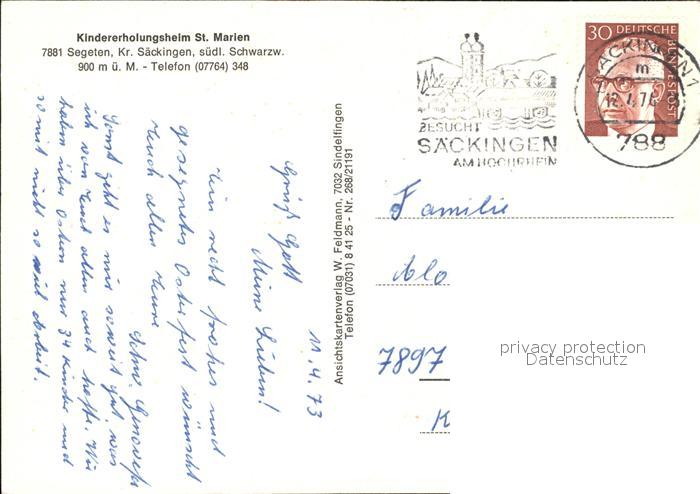 Kindererholungsheim St. Marien
7881 Segeten, Kr. Säckingen, südl. Schwarzw.
900 m ü. M. - Telefon (07764) 348
BESUCHT
SÄCKINGEN
AM HOCHRHEIN
30 DEUTSCHE BUNDESPOST
SÄCKINGEN 1
m
788
11.4.73
Grüß Gott
Meine Lieben!
Ein recht frohes und
gesegnetes Osterfest wünscht
Euch allen Eure
Schw. Genovefa
Sonst geht es mir soweit gut, was
ich von Euch allen auch hoffe. Wir
haben über Ostern nur 34 Kinder und
somit nicht so viel Arbeit.
Ansichtskartenverlag W. Feldmann, 7032 Sindelfingen
Telefon (07031) 8 41 25 - Nr. 268/21191
Familie
Alo
7897
K
privacy protection
Datenschutz